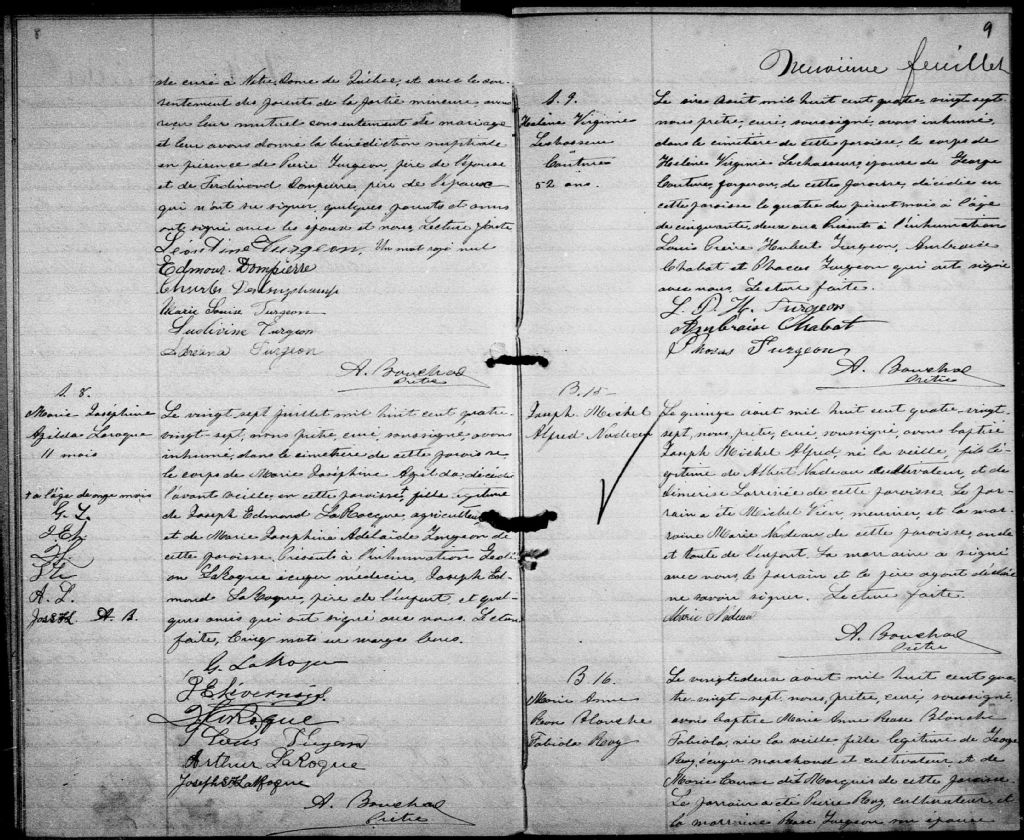 8
de curé à Notre Dame de Québec, et avec le con-
sentement des parents de la partie mineure, avons
reçu leur mutuel consentement de mariage
et leur avons donné la bénédiction nuptiale
en présence de Pierre Turgeon, père de l'épouse
et de Ferdinand Dompierre, père de l'époux
qui n'ont su signer, quelques parents et amis
ont signé avec les époux et nous, Lecture faite
Léontine Turgeon. Un mot rayé nul
Edmour Dompierre
Charles Deslongchamps
Marie Louise Turgeon
Ludivine Turgeon
Turgeon
A. Bouchard
Prêtre
S. 8.
Marie Joséphine
Azilda Laroque
11 mois
+ a l'âge de onze mois
G. L.
A. L.
A. B.
Le vingt sept juillet mil huit cent quatre-
vingt-sept, nous prêtre, curé soussigné, avons
inhumé, dans le cimetière de cette paroisse
le corps de Marie Joséphine Azilda, décédée
l'avant veille, en cette paroisse, fille légitime
de Joseph Edmond LaRocque, agriculteur
et de Marie Josephine Adelaïde Turgeon de
cette paroisse. Présents à l'inhumation
LaRoque écuyer médecin, Joseph Ed-
mond LaRoque, père de l'enfant, et quel-
ques amis qui ont signé avec nous. Lecture
faite, Cinq mots en marge bons.
G. LaRoque
LaRoque
Arthur LaRoque
Joseph LaRoque
A. Bouchard
Prêtre
9
Neuvième feuillet
S. 9.
Heslène Virginie
Lechasseur
Couture
52 ans.
Le six Août mil huit cent quatre vingt sept
nous prêtre, curé, soussigné, avons inhumé,
dans le cimetière de cette paroisse, le corps de
Heslène Virginie Lechasseur, épouse de George
Couture, forgeron, de cette paroisse, décédée en
cette paroisse le quatre du présent mois à l'âge
de cinquante deux ans Présents à l'inhumation
Louis Pierre Hubert Turgeon, Ambroise
Chabot et Phocas Turgeon qui ont signé
avec nous, Lecture faite.
L. P. H. Turgeon
Ambroise Chabot
Phocas Turgeon
A. Bouchard
Prêtre
B. 15
Joseph Michel
Alfred Nadeau
Le quinze août mil huit cent quatre-vingt-
sept, nous, prêtre, curé, soussigné, avons baptisé
Joseph Michel Alfred, né la veille, fils lé-
gitime de Albert Nadeau cultivateur, et de
de cette paroisse. Le par-
rain a été Michel Vien, meunier, et la mar-
raine Marie Nadeau de cette paroisse, oncle
et tante de l'enfant. La marraine a signé
avec nous, le parrain et le père ayant déclaré
ne savoir signer. Lecture faite.
Marie Nadeau
A. Bouchard
Prêtre
B 16.
Marie Anne
Rose Blanche
Fabiola Roy
Le vingtdeux août mil huit cent qua-
tre-vingt-sept. nous, prêtre, curé, soussigné,
avons baptisé Marie Anne Rose Blanche
Fabiola, née la veille fille légitime de George
Roy, écuyer marchand et cultivateur, et de
Marie Canac dit Marquis de cette paroisse.
Le parrain a été Pierre Roy cultivateur, et
la marraine Rose Turgeon son épouse